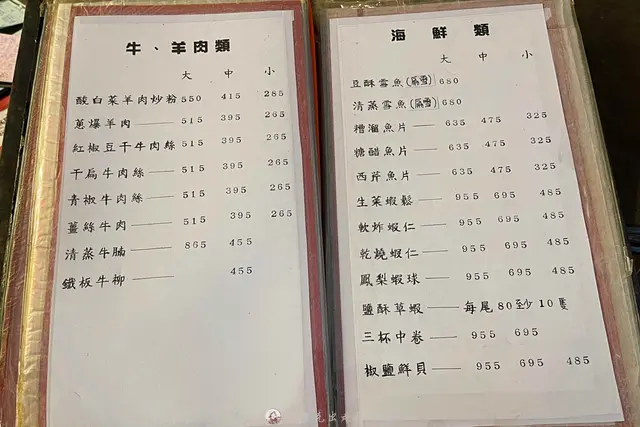 牛、羊肉類
大 中 小
酸白菜羊肉炒粉 550 415 285
蔥爆羊肉 —— 515 395 265
紅椒豆干牛肉絲 515 395 265
干扁牛肉絲 —— 515 395 265
青椒牛肉絲 —— 515 395 265
薑絲牛肉 —— 515 395 265
清蒸牛腩 —— 865 455
鐵板牛柳 —— 455
海鮮類
大 中 小
豆酥雪魚(扁雪) 680
清蒸雪魚(扁雪) 680
糟溜魚片 —— 635 475 325
糖醋魚片 —— 635 475 325
西芹魚片 —— 635 475 325
生菜蝦鬆 —— 955 695 485
軟炸蝦仁 —— 955 695 485
乾燒蝦仁 —— 955 695 485
鳳梨蝦球 —— 955 695 485
鹽酥草蝦 —— 每尾80至少10隻
三杯中卷 —— 955 695
椒鹽鮮貝 —— 955 695 485